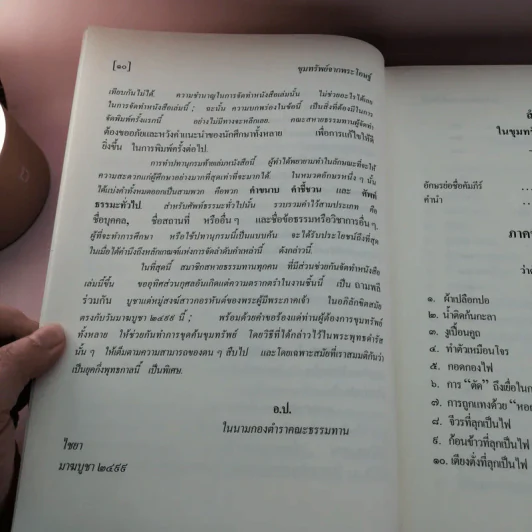 [๑๐]
ขุมทรัพย์จากพระโอษฐ์
เทียบกันไม่ได้. ความชำนาญในการจัดทำหนังสือเล่มนั้น ไม่ช่วยอะไรได้เลย
ในการจัดทำหนังสือเล่มนี้ ; ฉะนั้น ความบกพร่องในข้อนี้ เป็นสิ่งที่ต้องมีในการ
จัดพิมพ์ครั้งแรกนี้ อย่างไม่มีทางจะหลีกเลย. คณะสหายธรรมทานผู้จัดทำ
ต้องขออภัยและหวังคำแนะนำของนักศึกษาทั้งหลาย เพื่อการแก้ไขให้ดี
ยิ่งขึ้น ในการพิมพ์ครั้งต่อไป.
การทำปทานุกรมท้ายเล่มหนังสือนี้ ผู้ทำได้พยายามทำในลักษณะที่จะให้
ความสะดวกแก่ผู้ศึกษาอย่างมากที่สุดเท่าที่จะมากได้. ในหมวดอักษรหนึ่ง ๆ นั้น
ได้แบ่งคำทั้งหมดออกเป็นสามพวก คือพวก คำขนาบ คำชี้ชวน และ ศัพท์
ธรรมทั่วไป. สำหรับศัพท์ธรรมะทั่วไปนั้น รวบรวมคำไว้สามประเภท คือ
ชื่อบุคคล, ชื่อสถานที่ หรืออื่น ๆ และชื่อข้อธรรมหรือวิชาการอื่น ๆ.
ผู้ที่จะทำการศึกษา หรือใช้ปทานุกรมนี้เป็นแบบค้น จะได้รับประโยชน์ถึงที่สุด
ในเมื่อได้คำนึงถึงหลักเกณฑ์แห่งการจัดลำดับคำเหล่านี้ ดังกล่าวนี้.
ในที่สุดนี้ สมาชิกสหายธรรมทานทุกคน ที่มีส่วนช่วยกันจัดทำหนังสือ
เล่มนี้ขึ้น ขออุทิศส่วนกุศลอันเกิดแต่ความตรากตรำในงานชิ้นนี้ เป็น ถามพลี
ร่วมกัน บูชาแด่หมู่สงฆ์สาวกอรหันต์ของพระผู้มีพระภาคเจ้า ในอภิลักขิตสมัย
ตรงกับวันมาฆบูชา ๒๔๙๙ นี้ ; พร้อมด้วยคำขอร้องแด่ท่านผู้ต้องการขุมทรัพย์
ทั้งหลาย ให้ช่วยกันทำการขุดค้นขุมทรัพย์ โดยวิธีที่ได้กล่าวไว้ในพระพุทธดำรัส
นั้น ๆ ให้เต็มตามความสามารถของตน ๆ สืบไป และโดยเฉพาะสมัยที่เราสมมติกันว่า
เป็นยุคกึ่งพุทธกาลนี้ เป็นพิเศษ.
อ.ป.
ในนามกองตำราคณะธรรมทาน
ไชยา
มาฆบูชา ๒๔๙๙
ในขุมทรั
อักษรย่อชื่อคัมภีร์ ...
คำนำ ...
ภาค
ว่าด้
๑. ผ้าเปลือกปอ
๒. น้ำติดก้นกะลา
๓. งูเปื้อนคูถ
๔. ทำตัวเหมือนโจร
๕. กอดกองไฟ
๖. การ “ตัด” ถึงเยื่อในก
๗. การถูกแทงด้วย “หอ
๘. จีวรที่ลุกเป็นไฟ
๙. ก้อนข้าวที่ลุกเป็นไฟ
๑๐. เตียงตั่งที่ลุกเป็นไฟ